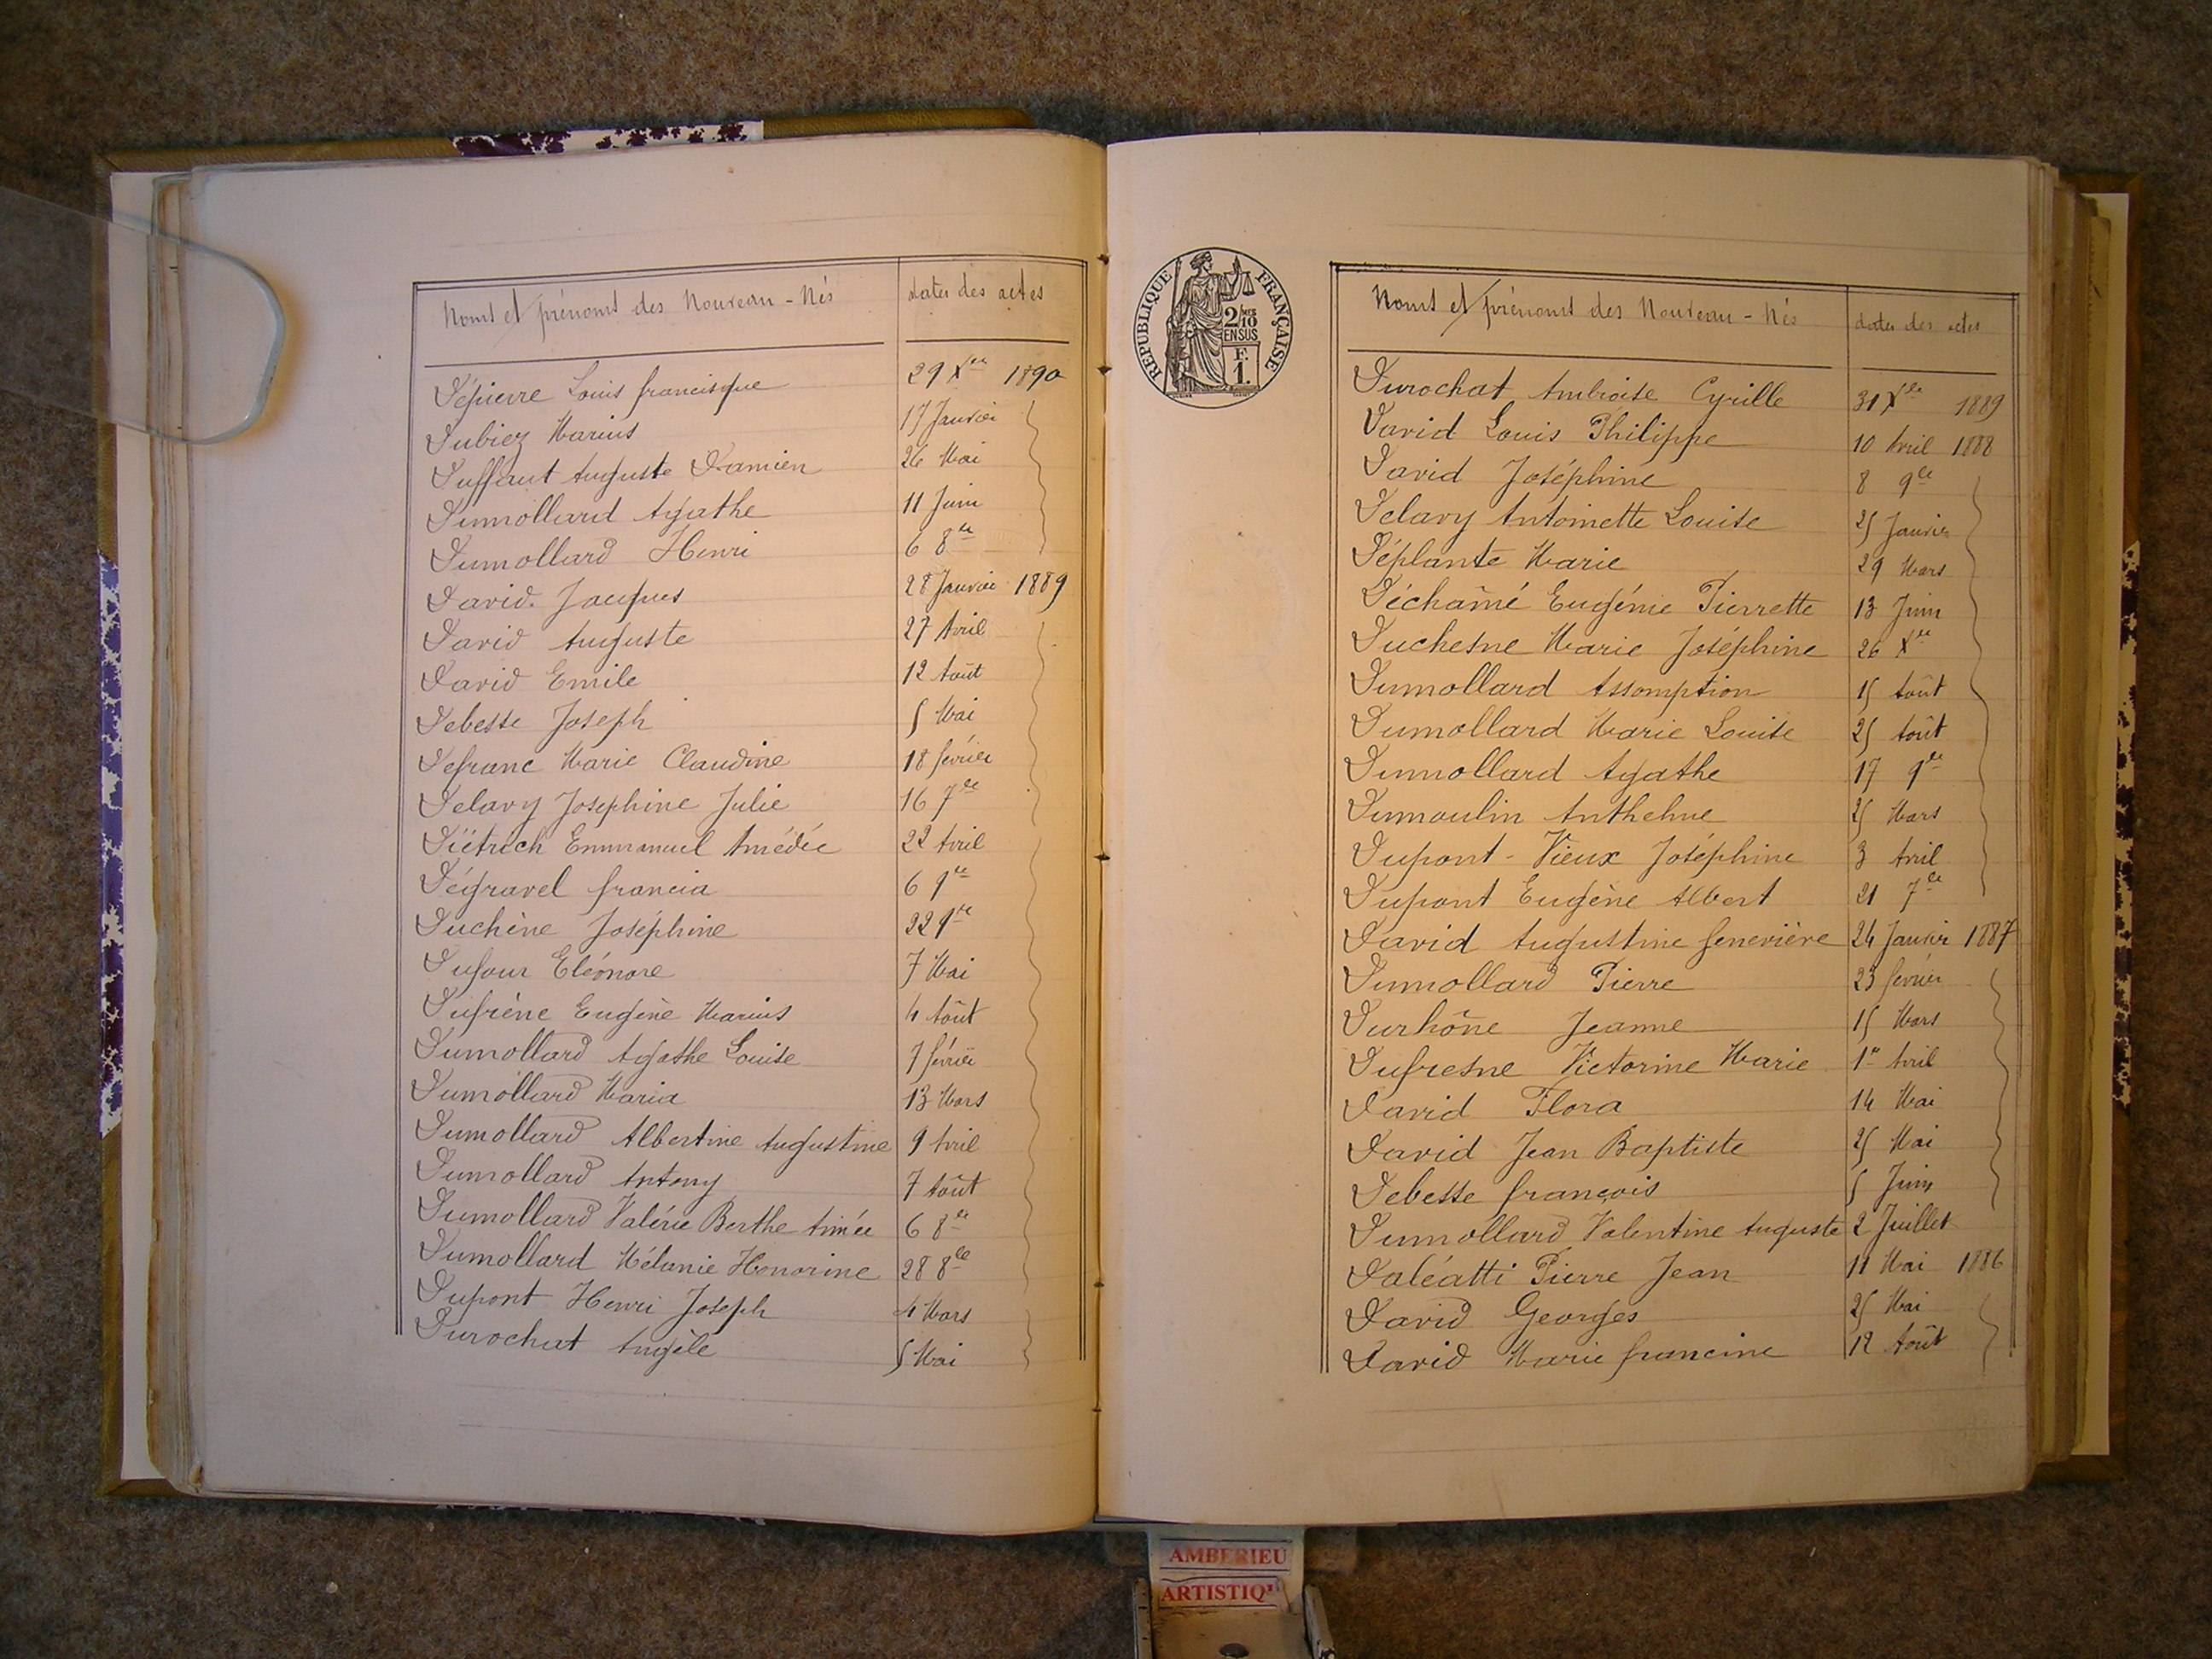 Noms et prénoms des Nouveau-Nés dates des actes
Dépierre Louis francisque 29 Xre 1890
Dubiez Marius 17 Janvier
Duffaut Auguste Damien 26 Mai
Dumollard Agathe 11 Juin
Dumollard Henri 6 8re
David Jacques 28 Janvier 1889
David Auguste 27 Avril
David Emile 12 Août
Debesse Joseph 5 Mai
Defranc Marie Claudine 18 février
Delavy Josephine Julie 16 7re
Diëtrich Emmanuel Amédée 22 Avril
Dégravel francia 6 9re
Duchène Joséphine 22 9re
Dufour Eléonore 7 Mai
Dufrène Eugène Marius 4 Août
Dumollard Agathe Louise 7 février
Dumollard Maria 13 Mars
Dumollard Albertine Augustine 9 Avril
Dumollard Antony 7 Août
Dumollard Valérie Berthe Aimée 6 8re
Dumollard Mélanie Honorine 28 8re
Dupont Henri Joseph 4 Mars
Durochat Angèle 5 Mai
RÉPUBLIQUE FRANÇAISE
2/10
EN SUS
F.
1.
Noms et prénoms des Nouveau-Nés dates des actes
Durochat Ambroise Cyrille 31 Xre 1889
David Louis Philippe 10 Avril 1888
David Joséphine 8 9re
Delavy Antoinette Louise 25 Janvier
Déplante Marie 29 Mars
Déchaîné Eugénie Pierrette 13 Juin
Duchesne Marie Joséphine 26 Xre
Dumollard Assomption 15 Août
Dumollard Marie Louise 25 Août
Dumollard Agathe 17 9re
Dumoulin Anthelme 25 Mars
Dupont-Vieux Joséphine 3 Avril
Dupont Eugène Albert 21 7re
David Augustine Geneviève 24 Janvier 1887
Dumollard Pierre 23 février
Durhône Jeanne 15 Mars
Dufresne Victorine Marie 1er Avril
David Flora 14 Mai
David Jean Baptiste 25 Mai
Debesse françois 5 Juin
Dumollard Valentine Auguste 2 Juillet
Daléatti Pierre Jean 11 Mai 1886
David Georges 25 Mai
David Marie francine 12 Août
AMBERIEU
ARTISTIQ